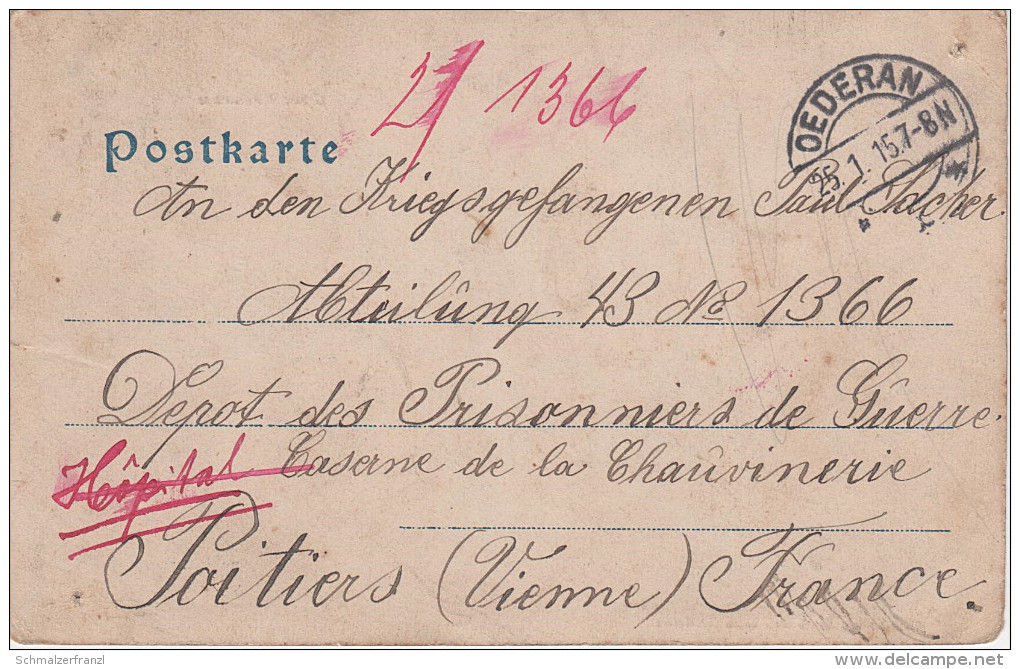 1366
OEDERAN
25.1.15.7-8N
Postkarte
An den Kriegsgefangenen Paul Pacher.
Abteilûng 43 No 1366
Depot des Prisonniers de Gûerre.
Hôpital Caserne de la Chaûvinerie
Poitiers (Vienne) France.
Schmalzerfranzl
delcampe.net